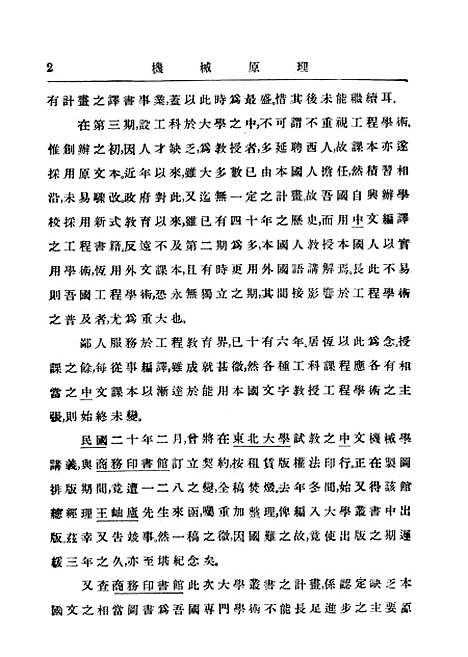 2 機械原理
有計畫之譯書事業,蓋以此時爲最盛,惜其後未能繼續耳.
在第三期,設工科於大學之中,不可謂不重視工程學術.
惟創辦之初,因人才缺乏,爲教授者,多延聘西人,故課本亦遂
採用原文本.近年以來,雖大多數已由本國人擔任,然積習相
沿,未易驟改.政府對此,又迄無一定之計畫.故吾國自興辦學
校採用新式教育以來,雖已有四十年之歷史,而用中文編譯
之工程書籍,反遠不及第二期爲多,本國人教授本國人以實
用學術,恆用外文課本,且有時更用外國語講解焉.長此不易
則吾國工程學術,恐永無獨立之期,其間接影響於工程學術
之普及者,尤爲重大也.
鄙人服務於工程教育界,已十有六年.居恆以此爲念.授
課之餘,每從事編譯,雖成就甚微,然各種工科課程應各有相
當之中文課本以漸達於能用本國文字教授工程學術之主
張,則始終未變.
民國二十年二月,曾將在東北大學試教之中文機械學
講義,與商務印書館訂立契約,按租賃版權法印行.正在製圖
排版期間,竟遭一二八之變,全稿焚燬.去年冬間,始又得該館
總經理王岫廬先生來函,囑重加整理,俾編入大學叢書中出
版.茲幸又告竣事.然一稿之微,因國難之故,竟使出版之期遲
緩三年之久,亦至堪紀念矣.
又查商務印書館此次大學叢書之計畫,係認定缺乏本
國文之相當圖書,爲吾國專門學術不能長足進步之主要原